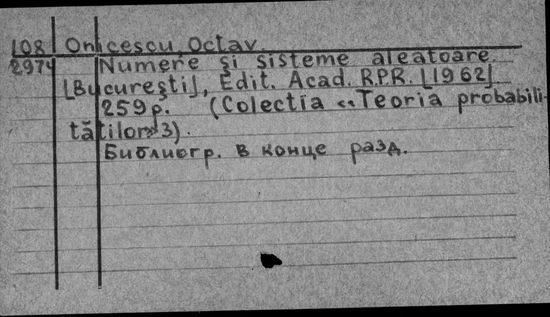 108 Onicescu, Octav.
2974 Numere şi sisteme aleatoare.
[Bucureşti], Edit. Acad. R.P.R. [1962]
259p. (Colectia «Teoria probabili-
tăţilor» 3).
Библиогр. в конце разд.